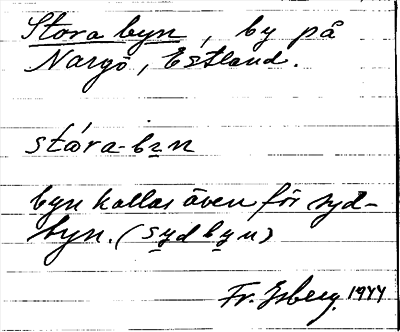 Stora byn, by på
Nargö, Estland.
stóra-bın
byn kallas även för syd-
byn. (sydbyn)
Fr. Esberg 1944